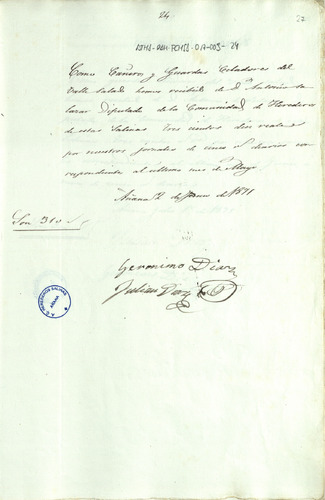 24.
27
Como Cañeros y Guardas Celadores del
Valle Salado hemos recibido de Dn Antonio
lazar Diputado de la Comunidad de Herederos
de estas Salinas Tres cientos diez reales
por nuestros jornales de cinco rs diarios
respondiente al último mes de Mayo
Añana 2 de Junio de 1871
Son 310 rs
Geronimo Diaz
Julian Diaz